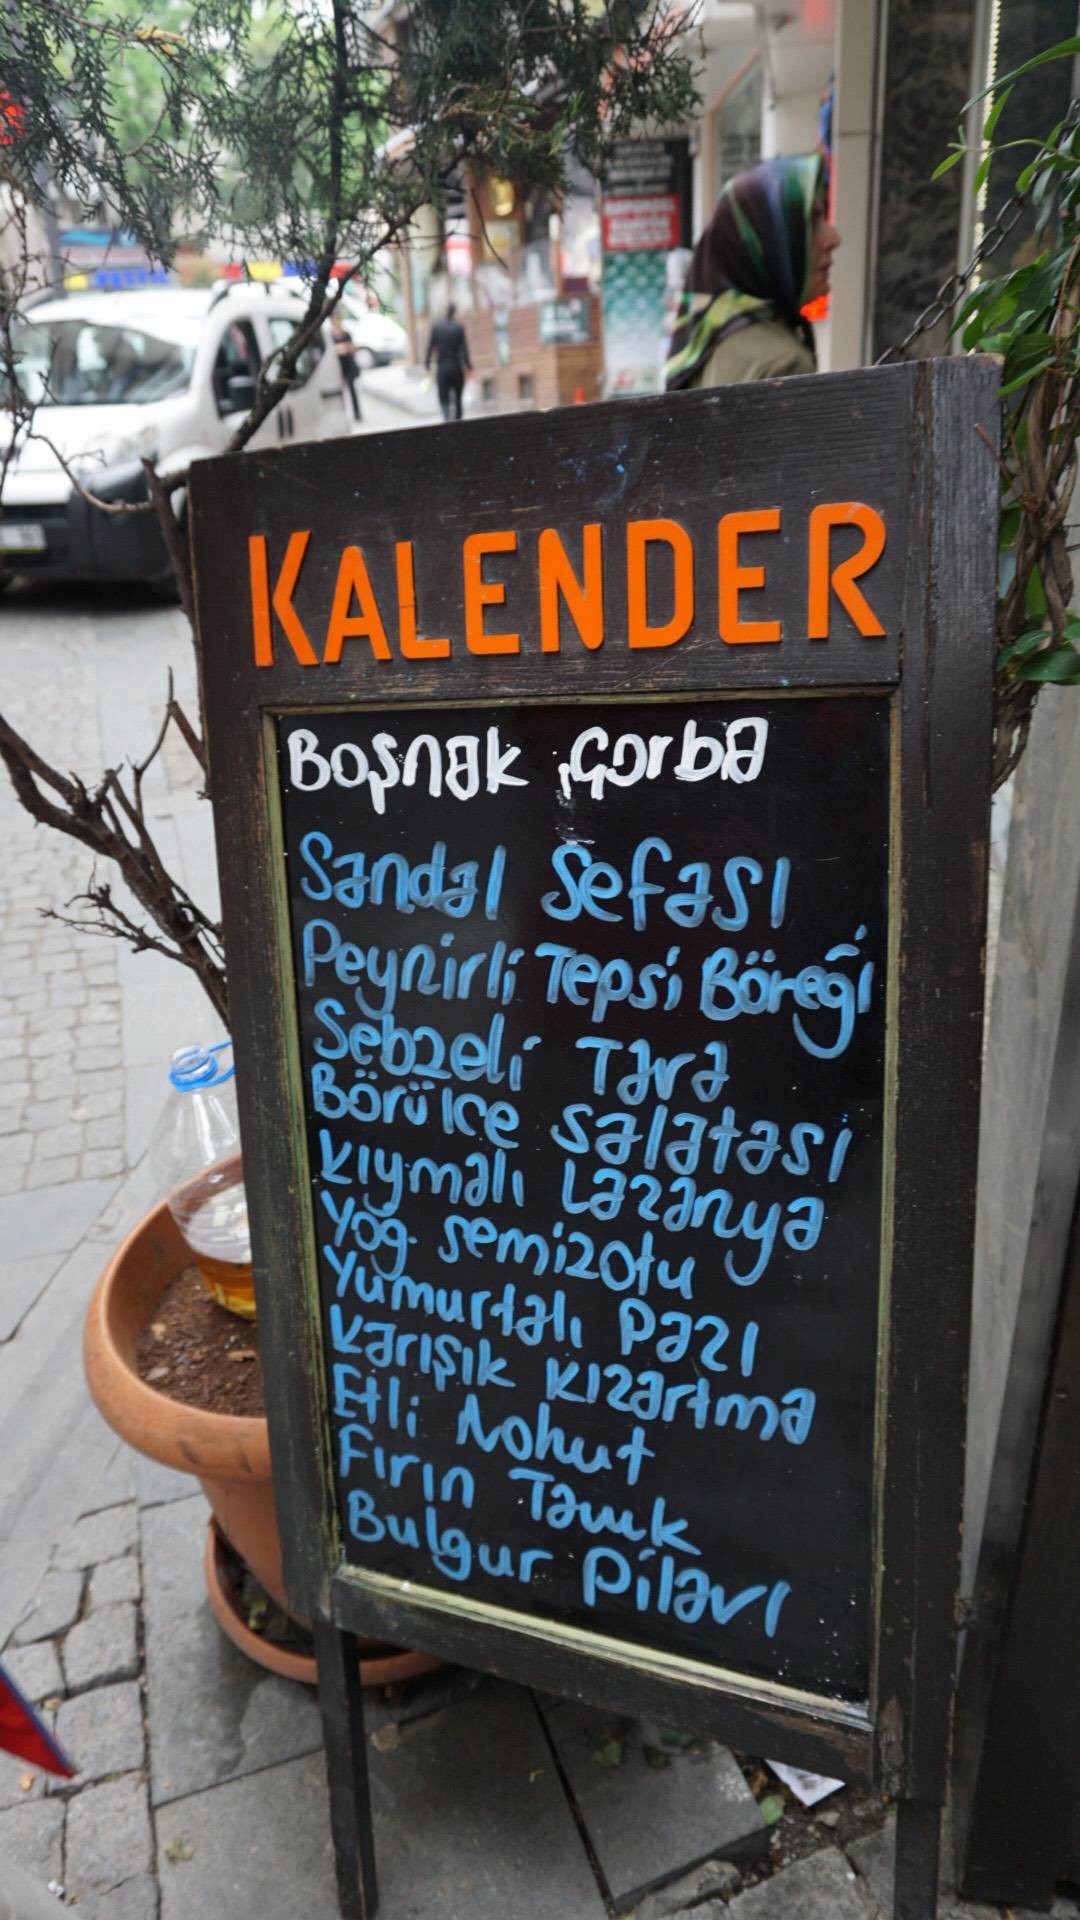 KALENDER
Boşnak Çorba
Sandal Sefası
Peynirli Tepsi Böreği
Sebzeli Tava
Börülce Salatası
Kıymalı Lazanya
Yoğ. Semizotu
Yumurtalı Pazı
Karışık Kızartma
Etli Nohut
Fırın Tavuk
Bulgur Pilavı